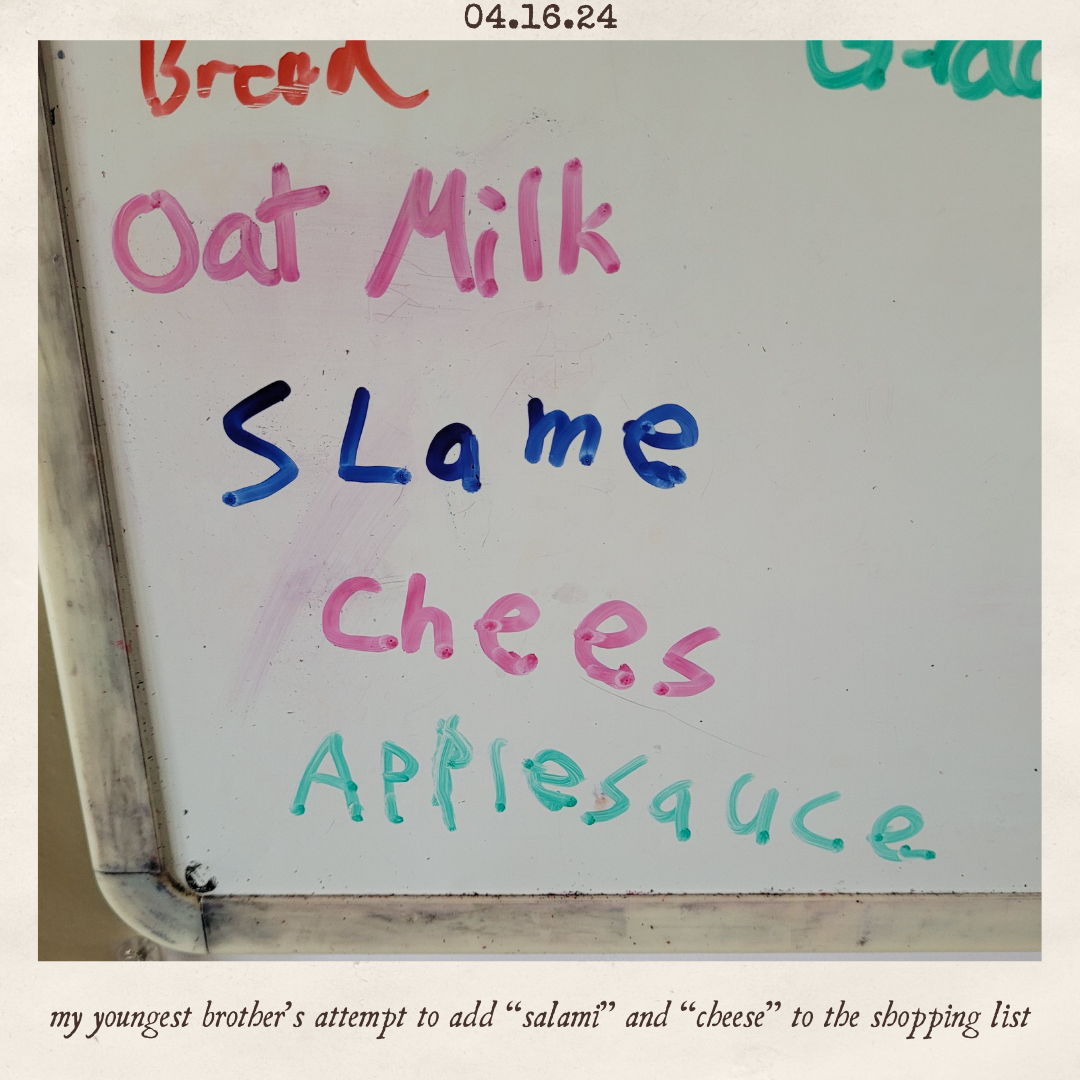 04.16.24
Bread
Oat Milk
SLame
Chees
Applesauce
my youngest brother's attempt to add “salami” and “cheese” to the shopping list